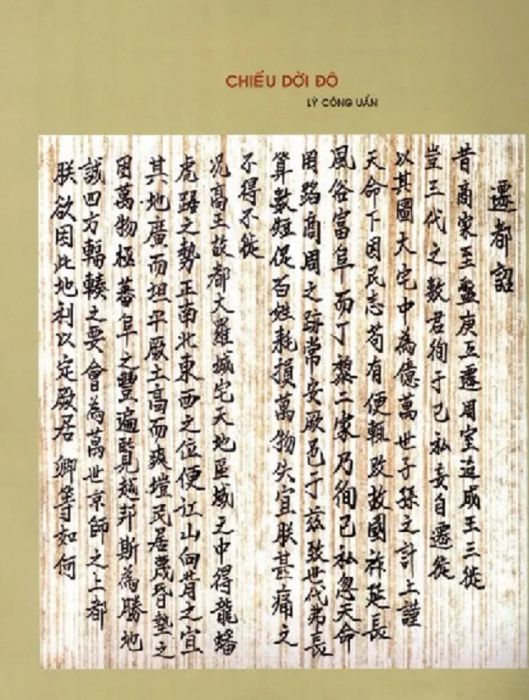 CHIẾU DỜI ĐÔ
LÝ CÔNG UẨN
遷都詔
昔商家至盤庚五遷周室迨成王三徙
豈三代之数君徇于己私妄自遷徙
以其圖大宅中為億萬世子孫之計上謹
天命下因民志苟有便輒改故國祚延長
風俗富阜而丁黎二家乃徇己私忽天命
罔蹈商周之跡常安厥邑于茲致世代弗長
算數短促百姓耗損萬物失宜朕甚痛之
不得不徙
况高王故都大羅城宅天地區域之中得龍蟠
虎踞之勢正南北東西之位便江山向背之宜
其地廣而坦平厥土高而爽塏民居蔑昏墊之
困萬物極蕃阜之豐遍覽越邦斯為勝地
誠四方輻輳之要會為萬世京師之上都
朕欲因此地利以定厥居 卿等如何